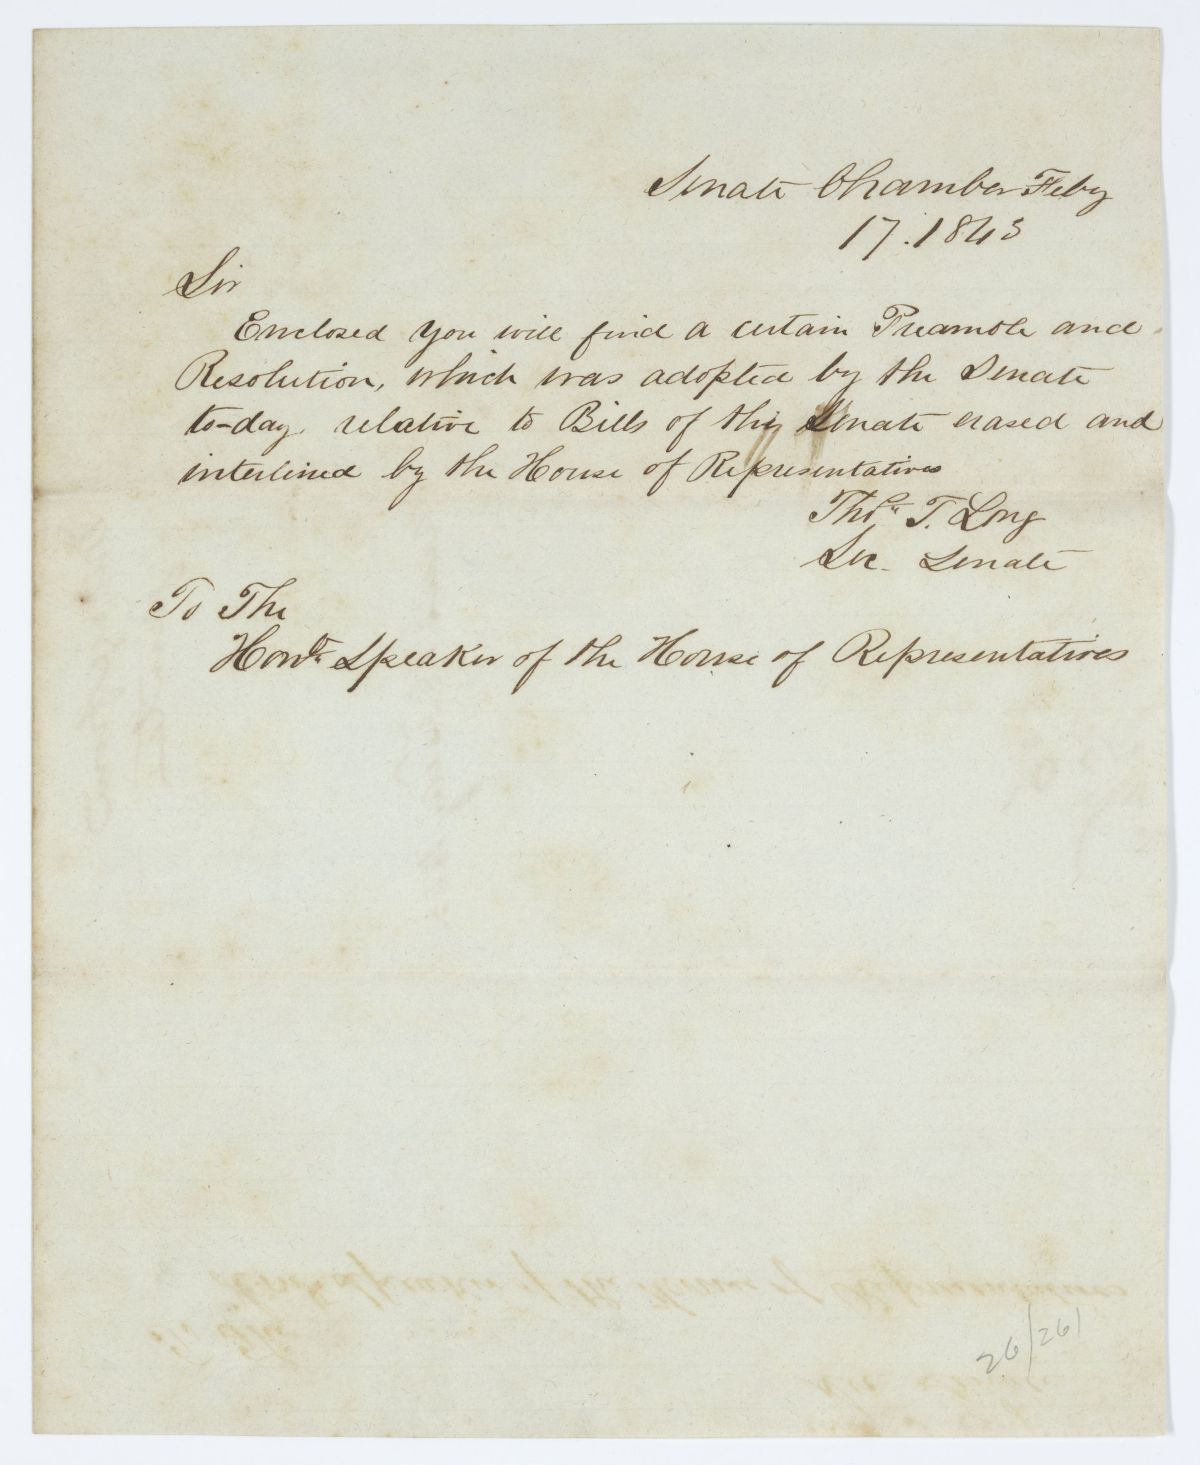 Senate Chamber Feby
17. 1843
Sir
Enclosed you will find a certain Preamble and
Resolution, which was adopted by the Senate
to-day relative to Bills of this Senate erased and
interlined by the House of Representatives
Thos. T. Long
Sec. Senate
To The
Honble. Speaker of the House of Representatives
26/261